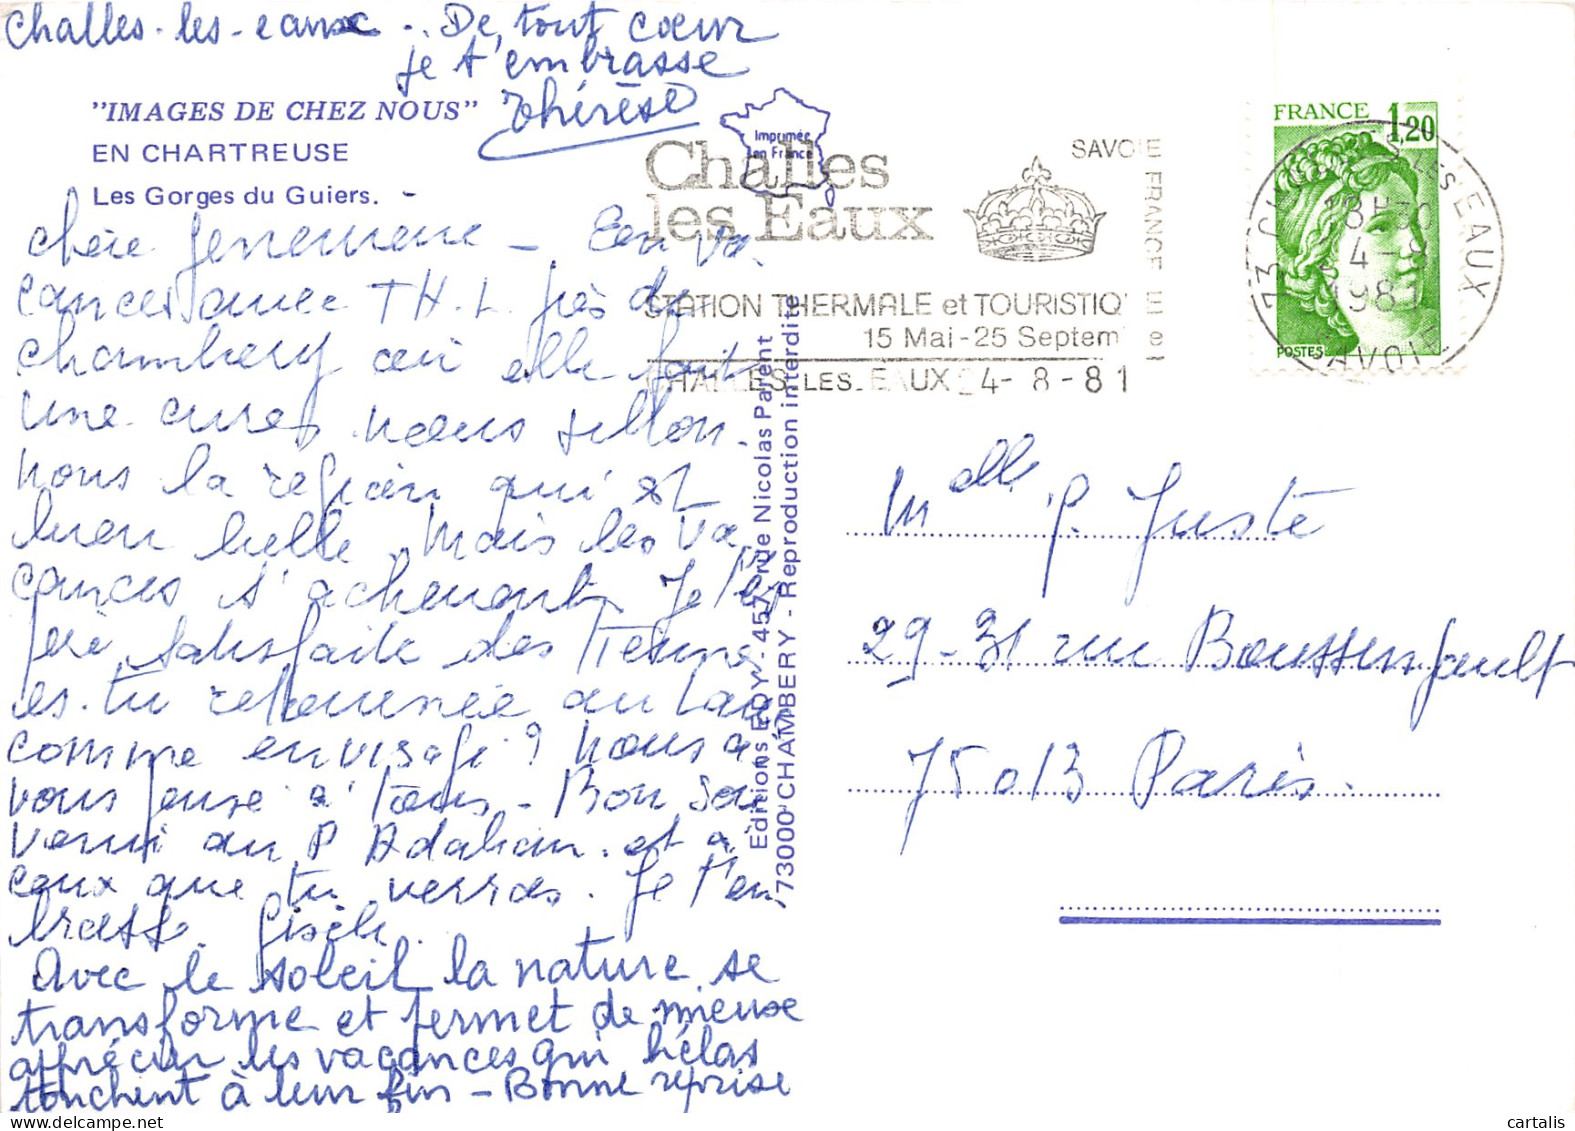 Challes-les-eaux -. De tout coeur
je t'embrasse
Thérèse
"IMAGES DE CHEZ NOUS"
EN CHARTREUSE
Les Gorges du Guiers. -
Imprimée
en France
Challes
les Eaux
SAVOIE FRANCE
STATION THERMALE et TOURISTIQUE
15 Mai-25 Septembre
CHALLES LES EAUX 24-8-81
FRANCE 1,20
POSTES
73 CHALLES LES EAUX
18H30
SAVOIE
chère - En va
cances avec TH. L. près de
Chambery où elle fait
une cure, nous sillon-
nons la région qui est
bien belle. Mais les va
cances s'achèvent. J'es
père satisfaite des
es-tu retournée au
comme envisagé ? nous a
vons pensé à tous - Bon sou
venir au P et à
ceux que tu verras. Je t'em
brasse. Gisèle.
Avec le soleil la nature se
transforme et permet de mieux
apprécier les vacances qui hélas
touchent à leur fin - Bonne reprise
Editions EDY - 457, rue Nicolas Parent
73000 CHAMBERY - Reproduction interdite
Melle P. Juste
29-31 rue Boussingault
75013 Paris.
cartalis